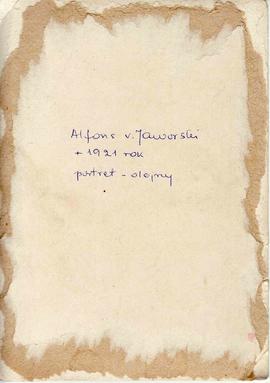 Alfons v. Jaworski
+ 1921 rok
portret - olejny